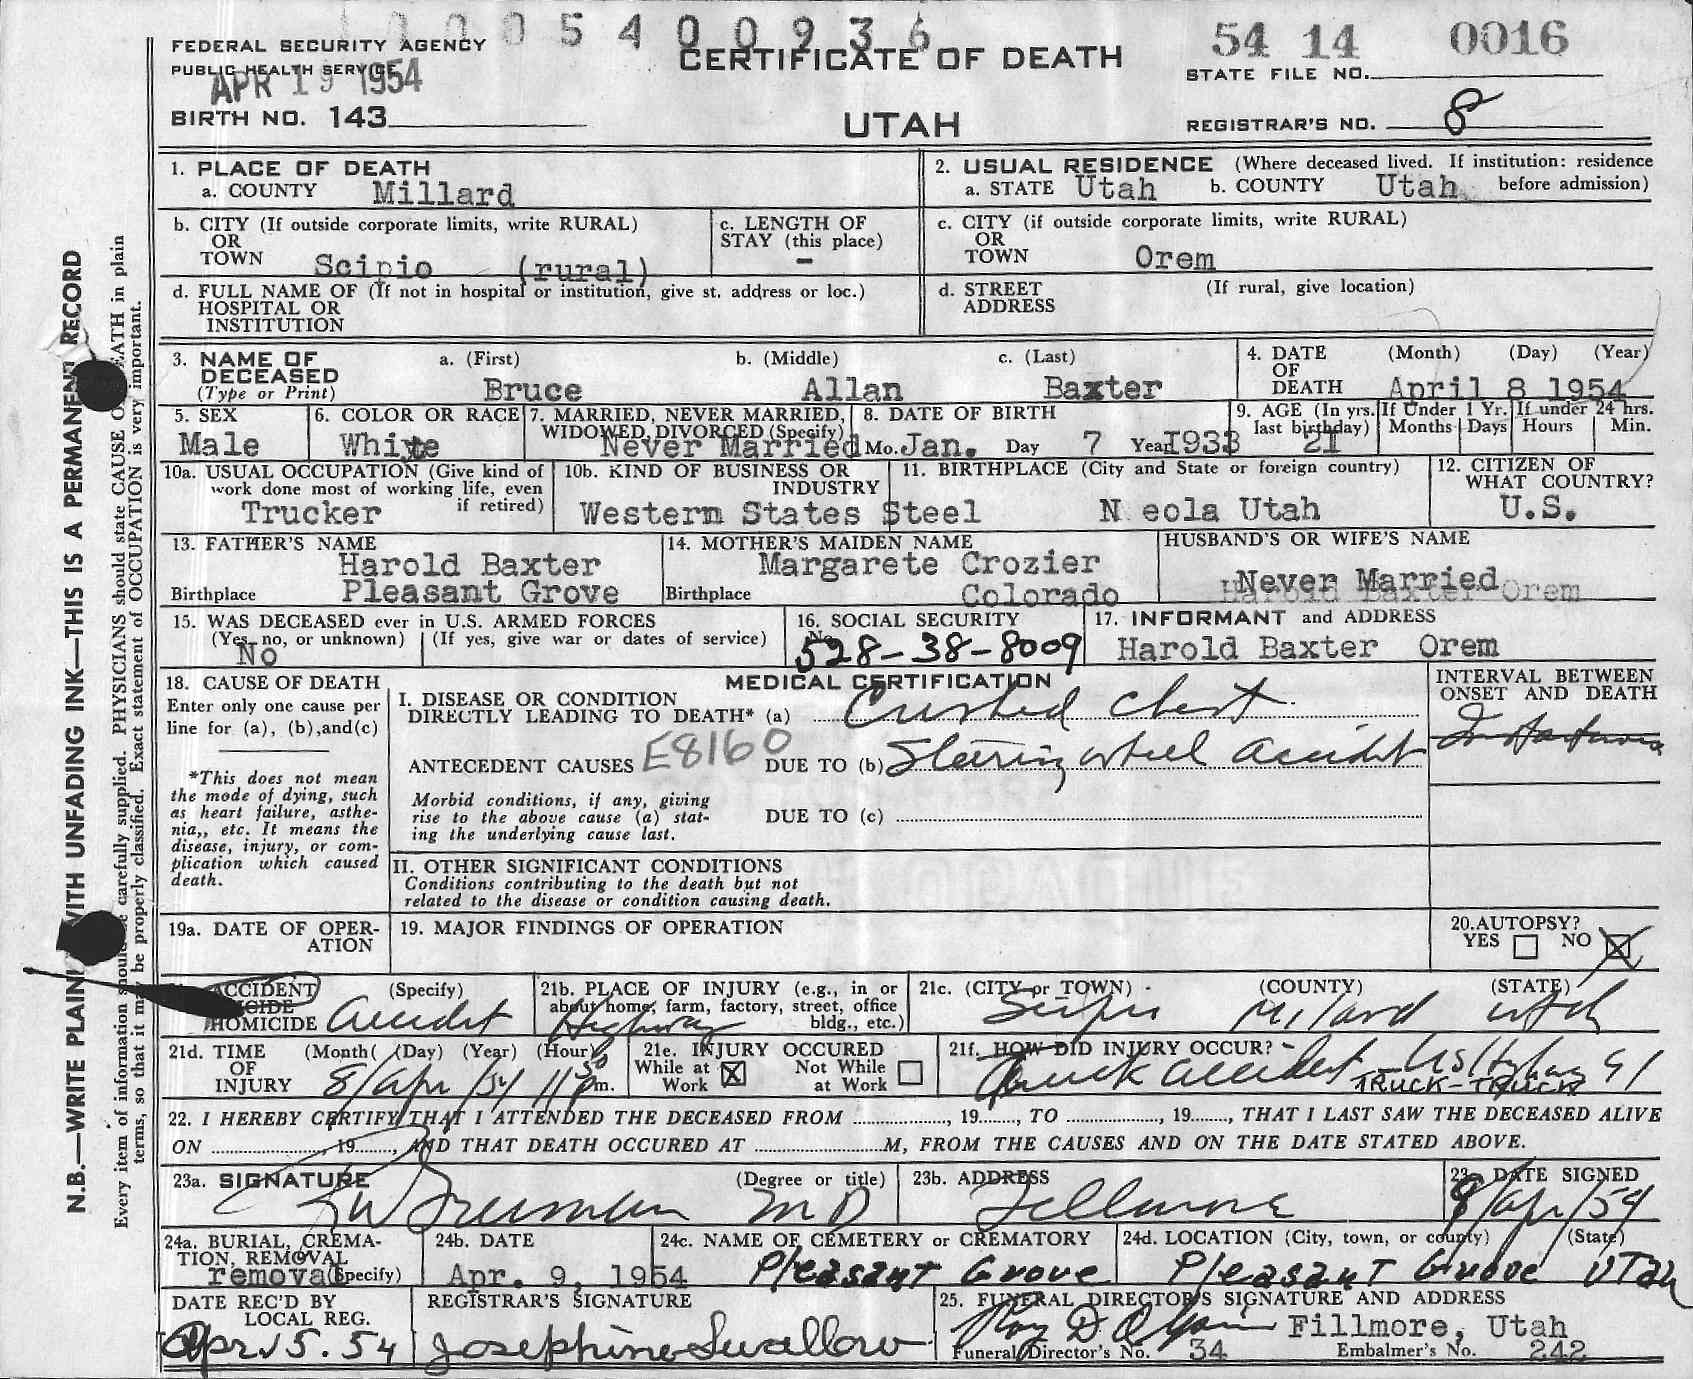 1000540093 6
54 14 0016
FEDERAL SECURITY AGENCY
PUBLIC HEALTH SERVICE
APR 19 1954
CERTIFICATE OF DEATH
STATE FILE NO.
BIRTH NO. 143
UTAH
REGISTRAR'S NO. 8
1. PLACE OF DEATH
a. COUNTY Millard
2. USUAL RESIDENCE (Where deceased lived. If institution: residence
a. STATE Utah b. COUNTY Utah before admission)
b. CITY (If outside corporate limits, write RURAL)
OR
TOWN Scipio (rural)
c. LENGTH OF
STAY (this place)
-
c. CITY (if outside corporate limits, write RURAL)
OR
TOWN Orem
d. FULL NAME OF (If not in hospital or institution, give st. address or loc.)
HOSPITAL OR
INSTITUTION
d. STREET (If rural, give location)
ADDRESS
3. NAME OF a. (First) b. (Middle) c. (Last)
DECEASED
(Type or Print) Bruce Allan Baxter
4. DATE (Month) (Day) (Year)
OF
DEATH April 8 1954
5. SEX
Male
6. COLOR OR RACE
White
7. MARRIED, NEVER MARRIED,
WIDOWED, DIVORCED (Specify)
Never Married
8. DATE OF BIRTH
Mo. Jan. Day 7 Year 1933
9. AGE (In yrs.
last birthday)
21
If Under 1 Yr.
Months Days
If under 24 hrs.
Hours Min.
10a. USUAL OCCUPATION (Give kind of
work done most of working life, even
if retired)
Trucker
10b. KIND OF BUSINESS OR
INDUSTRY
Western States Steel
11. BIRTHPLACE (City and State or foreign country)
N eola Utah
12. CITIZEN OF
WHAT COUNTRY?
U.S.
13. FATHER'S NAME
Harold Baxter
Birthplace Pleasant Grove
14. MOTHER'S MAIDEN NAME
Margarete Crozier
Birthplace Colorado
HUSBAND'S OR WIFE'S NAME
Never Married
Harold Baxter Orem
15. WAS DECEASED ever in U.S. ARMED FORCES
(Yes, no, or unknown) (If yes, give war or dates of service)
No
16. SOCIAL SECURITY
No.
528-38-8009
17. INFORMANT and ADDRESS
Harold Baxter Orem
18. CAUSE OF DEATH
Enter only one cause per
line for (a), (b),and(c)
MEDICAL CERTIFICATION
I. DISEASE OR CONDITION
DIRECTLY LEADING TO DEATH* (a) Crushed Chest
INTERVAL BETWEEN
ONSET AND DEATH
ANTECEDENT CAUSES E8160 DUE TO (b) Steering wheel accident
*This does not mean
the mode of dying, such
as heart failure, asthe-
nia,, etc. It means the
disease, injury, or com-
plication which caused
death.
Morbid conditions, if any, giving
rise to the above cause (a) stat-
ing the underlying cause last.
DUE TO (c)
II. OTHER SIGNIFICANT CONDITIONS
Conditions contributing to the death but not
related to the disease or condition causing death.
19a. DATE OF OPER-
ATION
19. MAJOR FINDINGS OF OPERATION
20.AUTOPSY?
YES NO
ACCIDENT (Specify)
HOMICIDE Accident
21b. PLACE OF INJURY (e.g., in or
about home, farm, factory, street, office
bldg., etc.)
Highway
21c. (CITY or TOWN) (COUNTY) (STATE)
Scipio Millard Utah
21d. TIME (Month) (Day) (Year) (Hour)
OF
INJURY 8/Apr/54 11 30 pm.
21e. INJURY OCCURED
While at Not While
Work at Work
21f. HOW DID INJURY OCCUR?
Truck accident US Highway 91
TRUCK-TRUCK
22. I HEREBY CERTIFY THAT I ATTENDED THE DECEASED FROM ................, 19......, TO ..............., 19......, THAT I LAST SAW THE DECEASED ALIVE
ON ................, 19......, AND THAT DEATH OCCURED AT ................M, FROM THE CAUSES AND ON THE DATE STATED ABOVE.
23a. SIGNATURE (Degree or title)
MD
23b. ADDRESS
Fillmore
DATE SIGNED
9/Apr/54
24a. BURIAL, CREMA-
TION, REMOVAL
(Specify)
removal
24b. DATE
Apr. 9, 1954
24c. NAME OF CEMETERY or CREMATORY
Pleasant Grove
24d. LOCATION (City, town, or county) (State)
Pleasant Grove UTah
DATE REC'D BY
LOCAL REG.
Apr 15. 54
REGISTRAR'S SIGNATURE
Josephine Swallow
25. FUNERAL DIRECTOR'S SIGNATURE AND ADDRESS
Fillmore, Utah
Funeral Director's No. 34 Embalmer's No. 242
N.B.—WRITE PLAINLY WITH UNFADING INK—THIS IS A PERMANENT RECORD
Every item of information should be carefully supplied. PHYSICIANS should state CAUSE OF DEATH in plain
terms, so that it may be properly classified. Exact statement of OCCUPATION is very important.